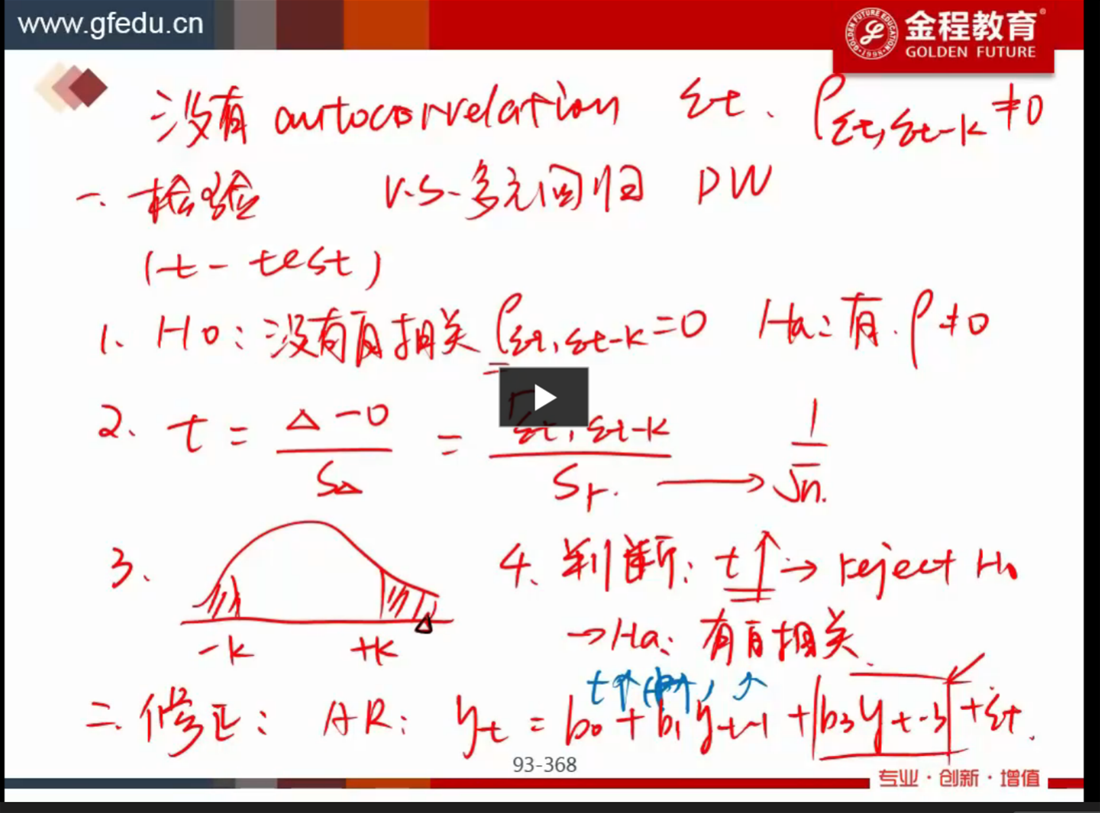 www.gfedu.cn
金程教育
GOLDEN FUTURE
没有 autocorrelation εt. ρεt,εt-k≠0
一. 检验 V.S.多元回归 DW
(t-test)
1. H0:没有自相关 ρεt,εt-k=0 Ha:有.ρ≠0
2. t = Δ-0 / SΔ = rεt,εt-k / Sr. → 1/√n.
3. 4. 判断: t↑ → reject H0
-k +k Δ → Ha: 有自相关
二. 修正: AR: yt = b0 + b1yt-1 + b3yt-3 + εt.
93-368
专业·创新·增值